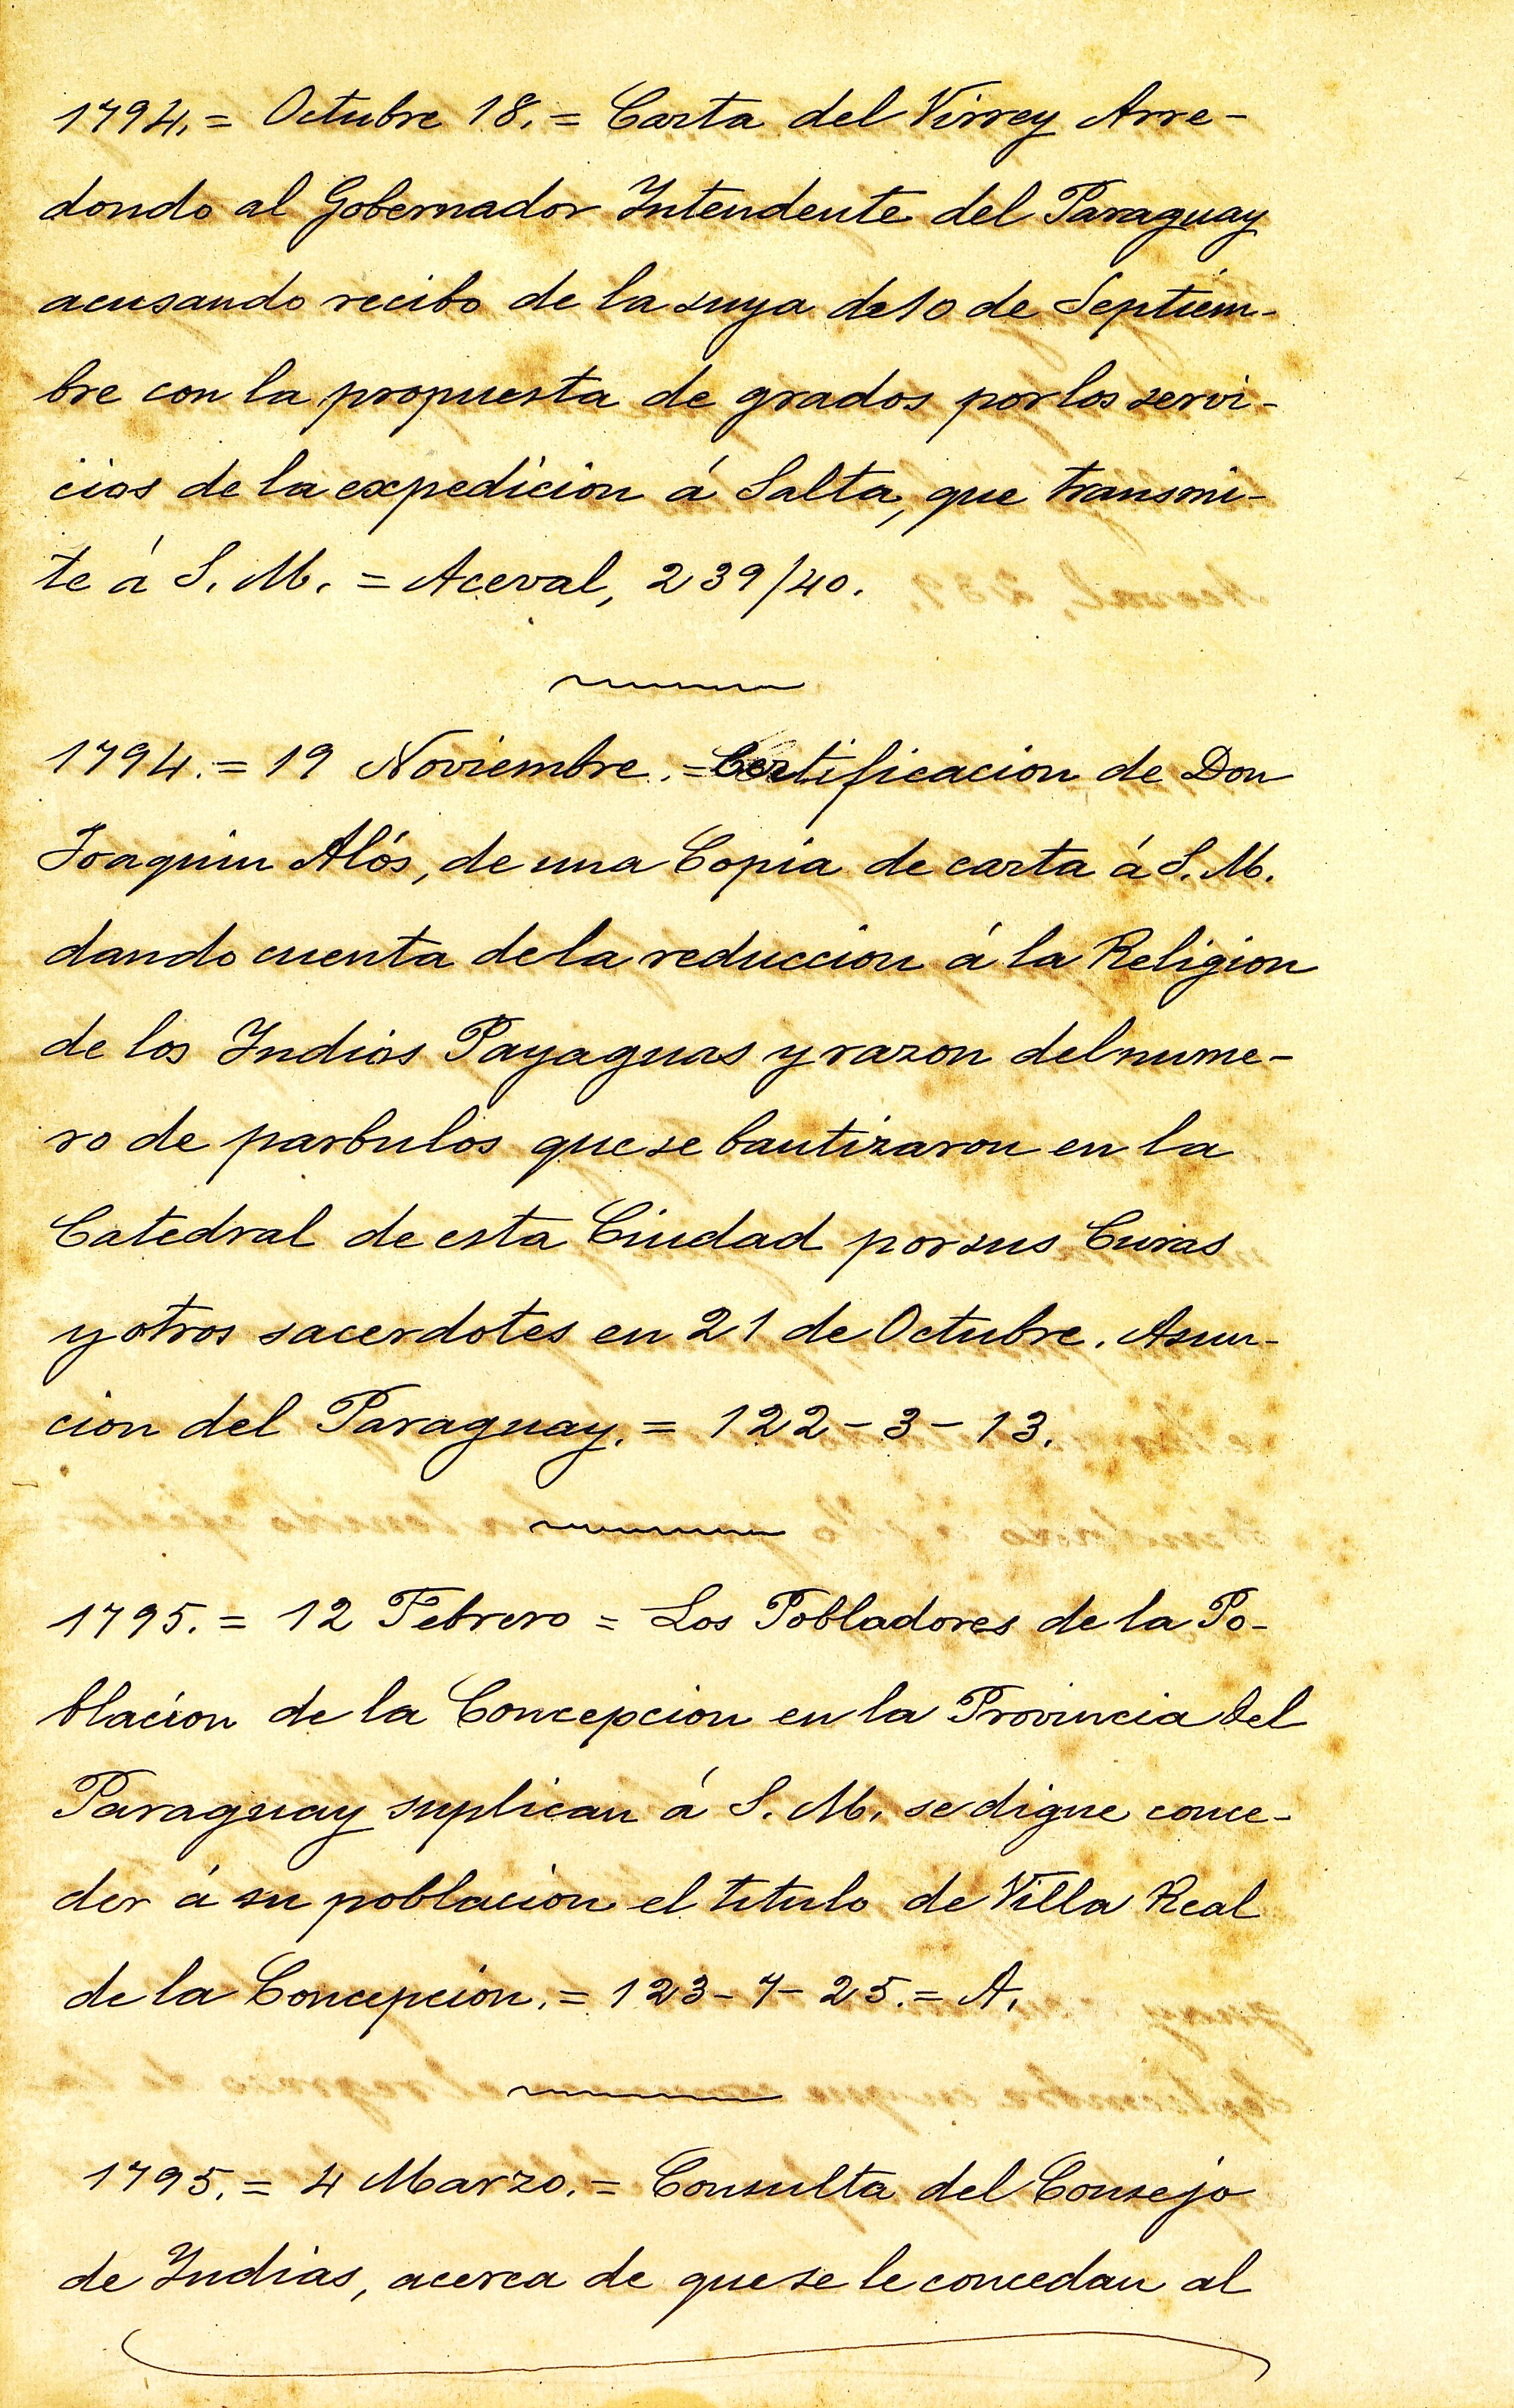 1794. = Octubre 18. = Carta del Virrey Arre-
dondo al Gobernador Intendente del Paraguay
acusando recibo de la suya de 10 de Septiem-
bre con la propuesta de grados por los servi-
cios de la expedicion á Salta, que transmi-
te á S. M. = Aceval, 239/40.
1794. = 19 Noviembre. = Certificacion de Don
Joaquin Alós, de una Copia de carta á S. M.
dando cuenta de la reduccion á la Religion
de los Indios Payaguas y razon del nume-
ro de parbulos que se bautizaron en la
Catedral de esta Ciudad por sus Curas
y otros sacerdotes en 21 de Octubre. Asun-
cion del Paraguay. = 122-3-13.
1795. = 12 Febrero = Los Pobladores de la Po-
blacion de la Concepcion en la Provincia del
Paraguay suplican á S. M. se digne conce-
der á su poblacion el titulo de Villa Real
de la Concepcion. = 123-7-25. = A.
1795. = 4 Marzo. = Consulta del Consejo
de Indias, acerca de que se le concedan al